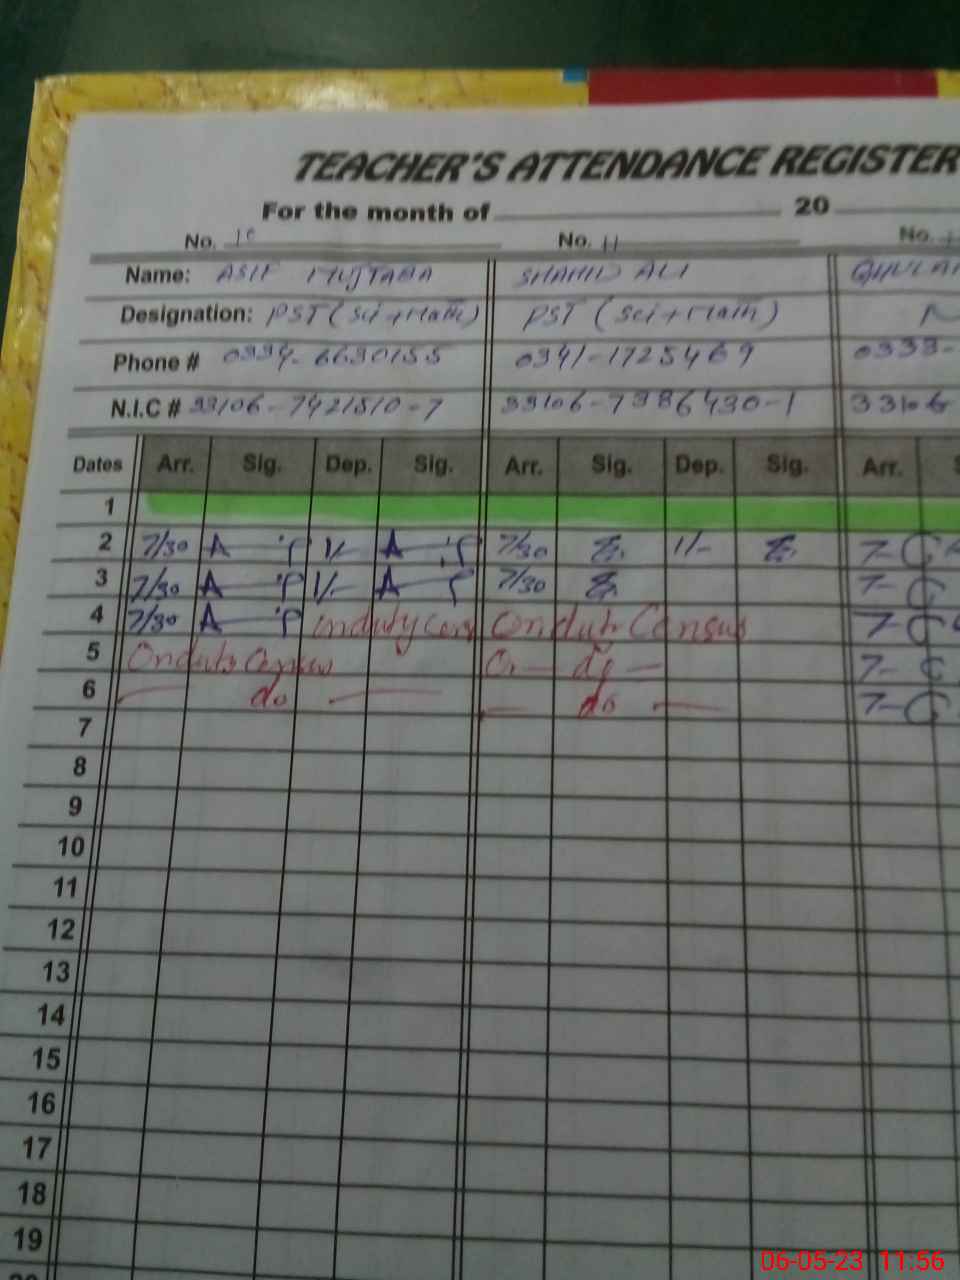 TEACHER'S ATTENDANCE REGISTER
For the month of 20
No. 10 No. 11 No.
Name: ASIF MUJTABA SHAHID ALI
Designation: PST (Sci+Math) PST (Sci+Math)
Phone # 0334-6630155 0341-1725469 0333-
N.I.C # 33106-7421510-7 33106-7386430-1 33106
Dates Arr. Sig. Dep. Sig. Arr. Sig. Dep. Sig. Arr.
1
2 7/30 A 1/- A 7/30 1/- 7-
3 7/30 A 1/- A 7/30 7-
4 7/30 A onduty Census 7-
5 Onduty Census do 7-
6 do do 7-
7
8
9
10
11
12
13
14
15
16
17
18
19
06-05-23 11:56